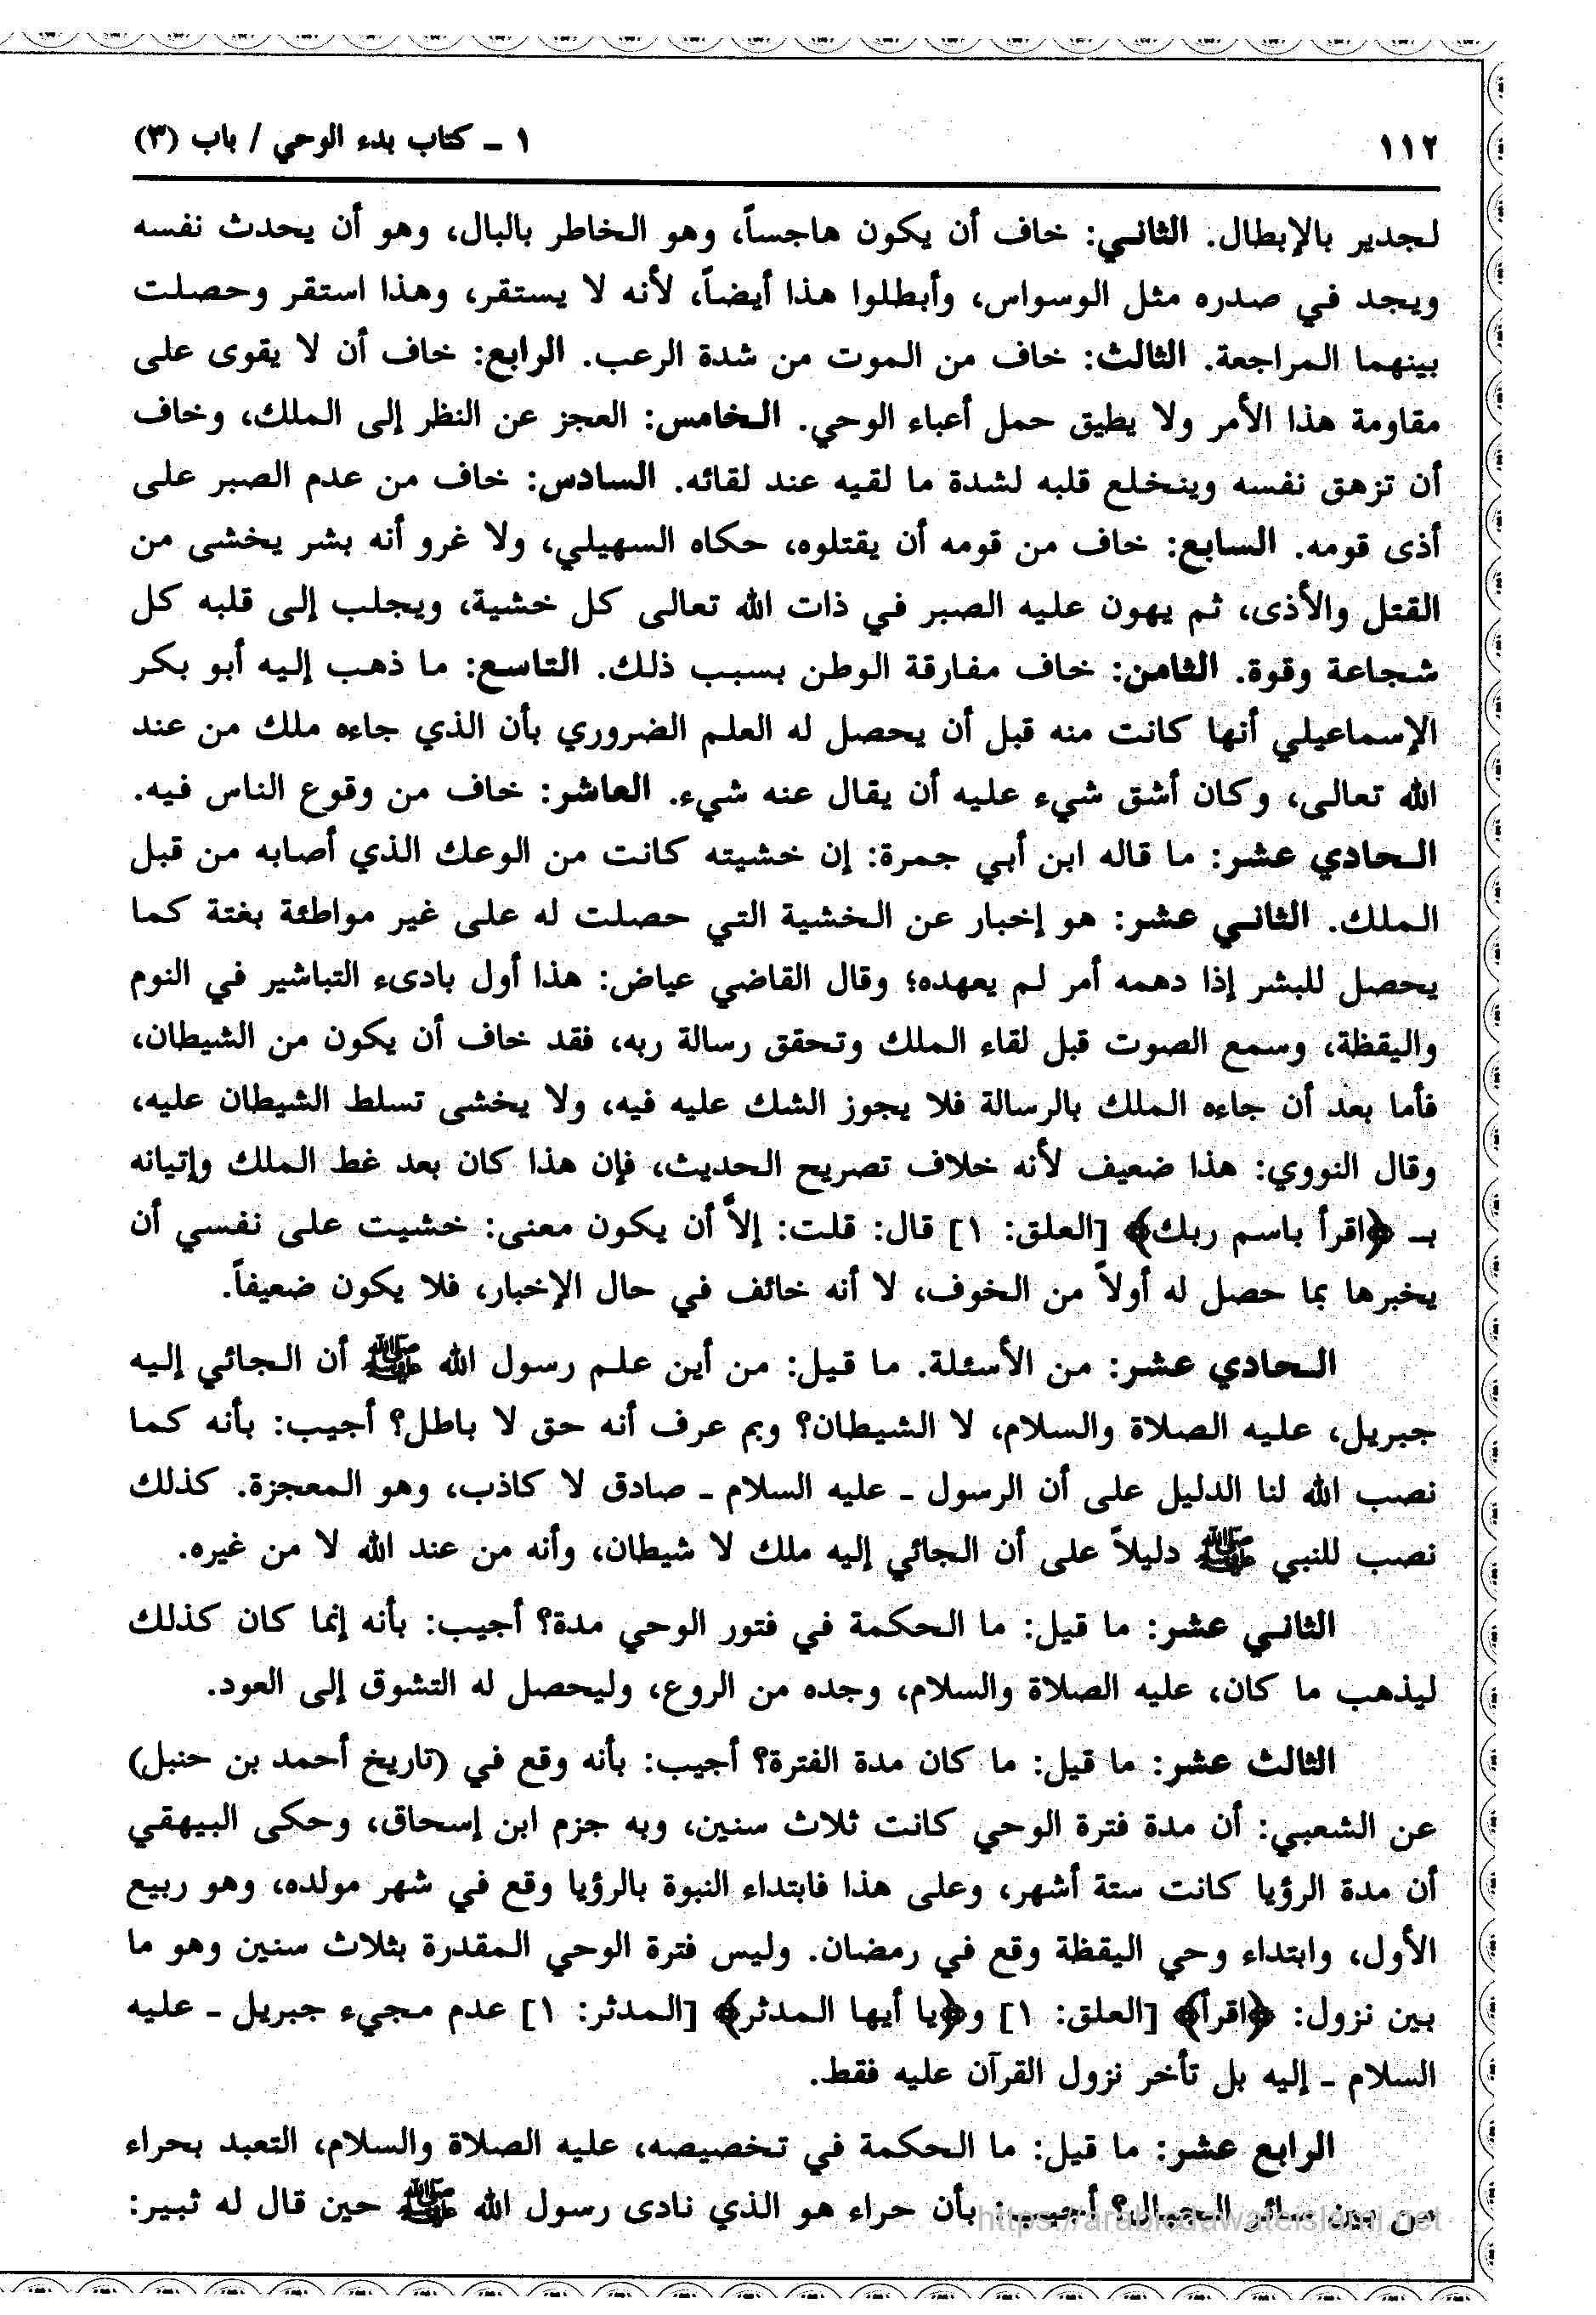 ١١٢
١ ـ كتاب بدء الوحي / باب (٣)
لجدير بالإبطال. الثاني: خاف أن يكون هاجساً، وهو الخاطر بالبال، وهو أن يحدث نفسه
ويجد في صدره مثل الوسواس، وأبطلوا هذا أيضاً، لأنه لا يستقر، وهذا استقر وحصلت
بينهما المراجعة. الثالث: خاف من الموت من شدة الرعب. الرابع: خاف أن لا يقوى على
مقاومة هذا الأمر ولا يطيق حمل أعباء الوحي. الخامس: العجز عن النظر إلى الملك، وخاف
أن تزهق نفسه وينخلع قلبه لشدة ما لقيه عند لقائه. السادس: خاف من عدم الصبر على
أذى قومه. السابع: خاف من قومه أن يقتلوه، حكاه السهيلي، ولا غرو أنه بشر يخشى من
القتل والأذى، ثم يهون عليه الصبر في ذات الله تعالى كل خشية، ويجلب إلى قلبه كل
شجاعة وقوة. الثامن: خاف مفارقة الوطن بسبب ذلك. التاسع: ما ذهب إليه أبو بكر
الإسماعيلي أنها كانت منه قبل أن يحصل له العلم الضروري بأن الذي جاءه ملك من عند
الله تعالى، وكان أشق شيء عليه أن يقال عنه شيء. العاشر: خاف من وقوع الناس فيه.
الحادي عشر: ما قاله ابن أبي جمرة: إن خشيته كانت من الوعك الذي أصابه من قبل
الملك. الثاني عشر: هو إخبار عن الخشية التي حصلت له على غير مواطئة بغتة كما
يحصل للبشر إذا دهمه أمر لم يعهده؛ وقال القاضي عياض: هذا أول بادىء التباشير في النوم
واليقظة، وسمع الصوت قبل لقاء الملك وتحقق رسالة ربه، فقد خاف أن يكون من الشيطان،
فأما بعد أن جاءه الملك بالرسالة فلا يجوز الشك عليه فيه، ولا يخشى تسلط الشيطان عليه،
وقال النووي: هذا ضعيف لأنه خلاف تصريح الحديث، فإن هذا كان بعد غط الملك وإتيانه
بـ ﴿اقرأ باسم ربك﴾ [العلق: ١] قال: قلت: إلاَّ أن يكون معنى: خشيت على نفسي أن
يخبرها بما حصل له أولاً من الخوف، لا أنه خائف في حال الإخبار، فلا يكون ضعيفاً.
الحادي عشر: من الأسئلة. ما قيل: من أين علم رسول الله ﷺ أن الجائي إليه
جبريل، عليه الصلاة والسلام، لا الشيطان؟ وبم عرف أنه حق لا باطل؟ أجيب: بأنه كما
نصب الله لنا الدليل على أن الرسول ـ عليه السلام ـ صادق لا كاذب، وهو المعجزة. كذلك
نصب للنبي ﷺ دليلاً على أن الجائي إليه ملك لا شيطان، وأنه من عند الله لا من غيره.
الثاني عشر: ما قيل: ما الحكمة في فتور الوحي مدة؟ أجيب: بأنه إنما كان كذلك
ليذهب ما كان، عليه الصلاة والسلام، وجده من الروع، وليحصل له التشوق إلى العود.
الثالث عشر: ما قيل: ما كان مدة الفترة؟ أجيب: بأنه وقع في (تاريخ أحمد بن حنبل)
عن الشعبي: أن مدة فترة الوحي كانت ثلاث سنين، وبه جزم ابن إسحاق، وحكى البيهقي
أن مدة الرؤيا كانت ستة أشهر، وعلى هذا فابتداء النبوة بالرؤيا وقع في شهر مولده، وهو ربيع
الأول، وابتداء وحي اليقظة وقع في رمضان. وليس فترة الوحي المقدرة بثلاث سنين وهو ما
بين نزول: ﴿اقرأ﴾ [العلق: ١] و﴿يا أيها المدثر﴾ [المدثر: ١] عدم مجيء جبريل ـ عليه
السلام ـ إليه بل تأخر نزول القرآن عليه فقط.
الرابع عشر: ما قيل: ما الحكمة في تخصيصه، عليه الصلاة والسلام، التعبد بحراء
من بين سائر الجبال؟ أجيب: بأن حراء هو الذي نادى رسول الله ﷺ حين قال له ثبير:
https://arabicdawateislami.net